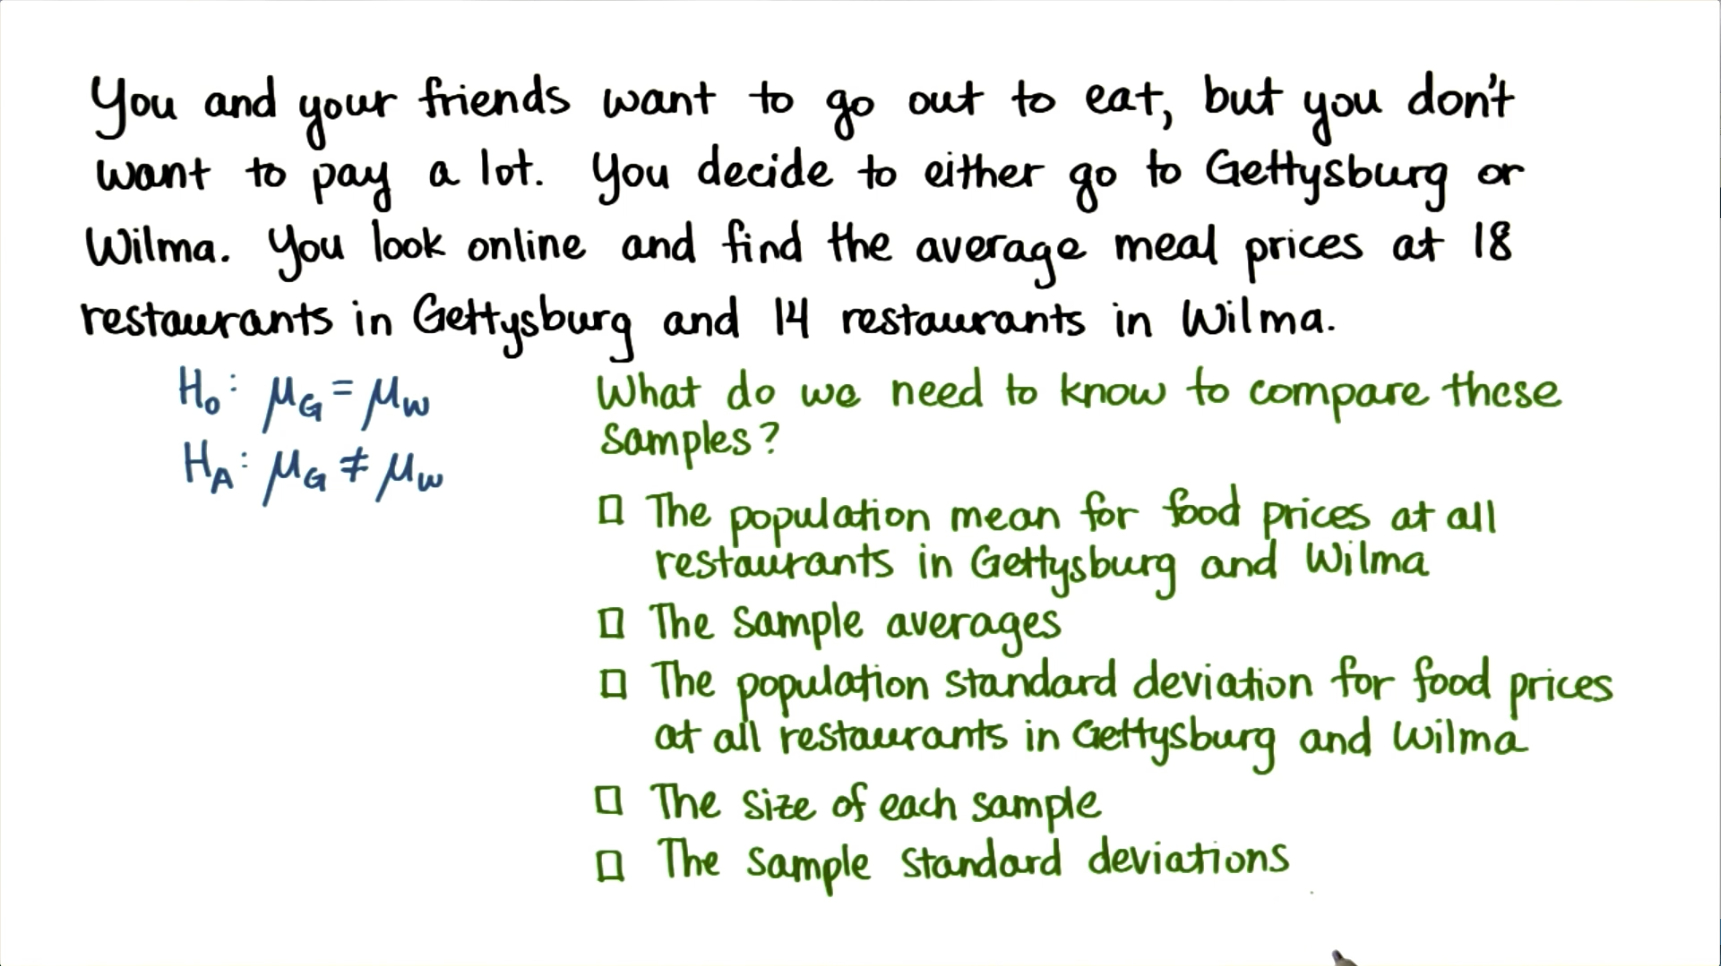 You and your friends want to go out to eat, but you don't
want to pay a lot. You decide to either go to Gettysburg or
Wilma. You look online and find the average meal prices at 18
restaurants in Gettysburg and 14 restaurants in Wilma.
H₀: μG = μW
HA: μG ≠ μW
What do we need to know to compare these
samples?
□ The population mean for food prices at all
restaurants in Gettysburg and Wilma
□ The sample averages
□ The population standard deviation for food prices
at all restaurants in Gettysburg and Wilma
□ The size of each sample
□ The sample standard deviations